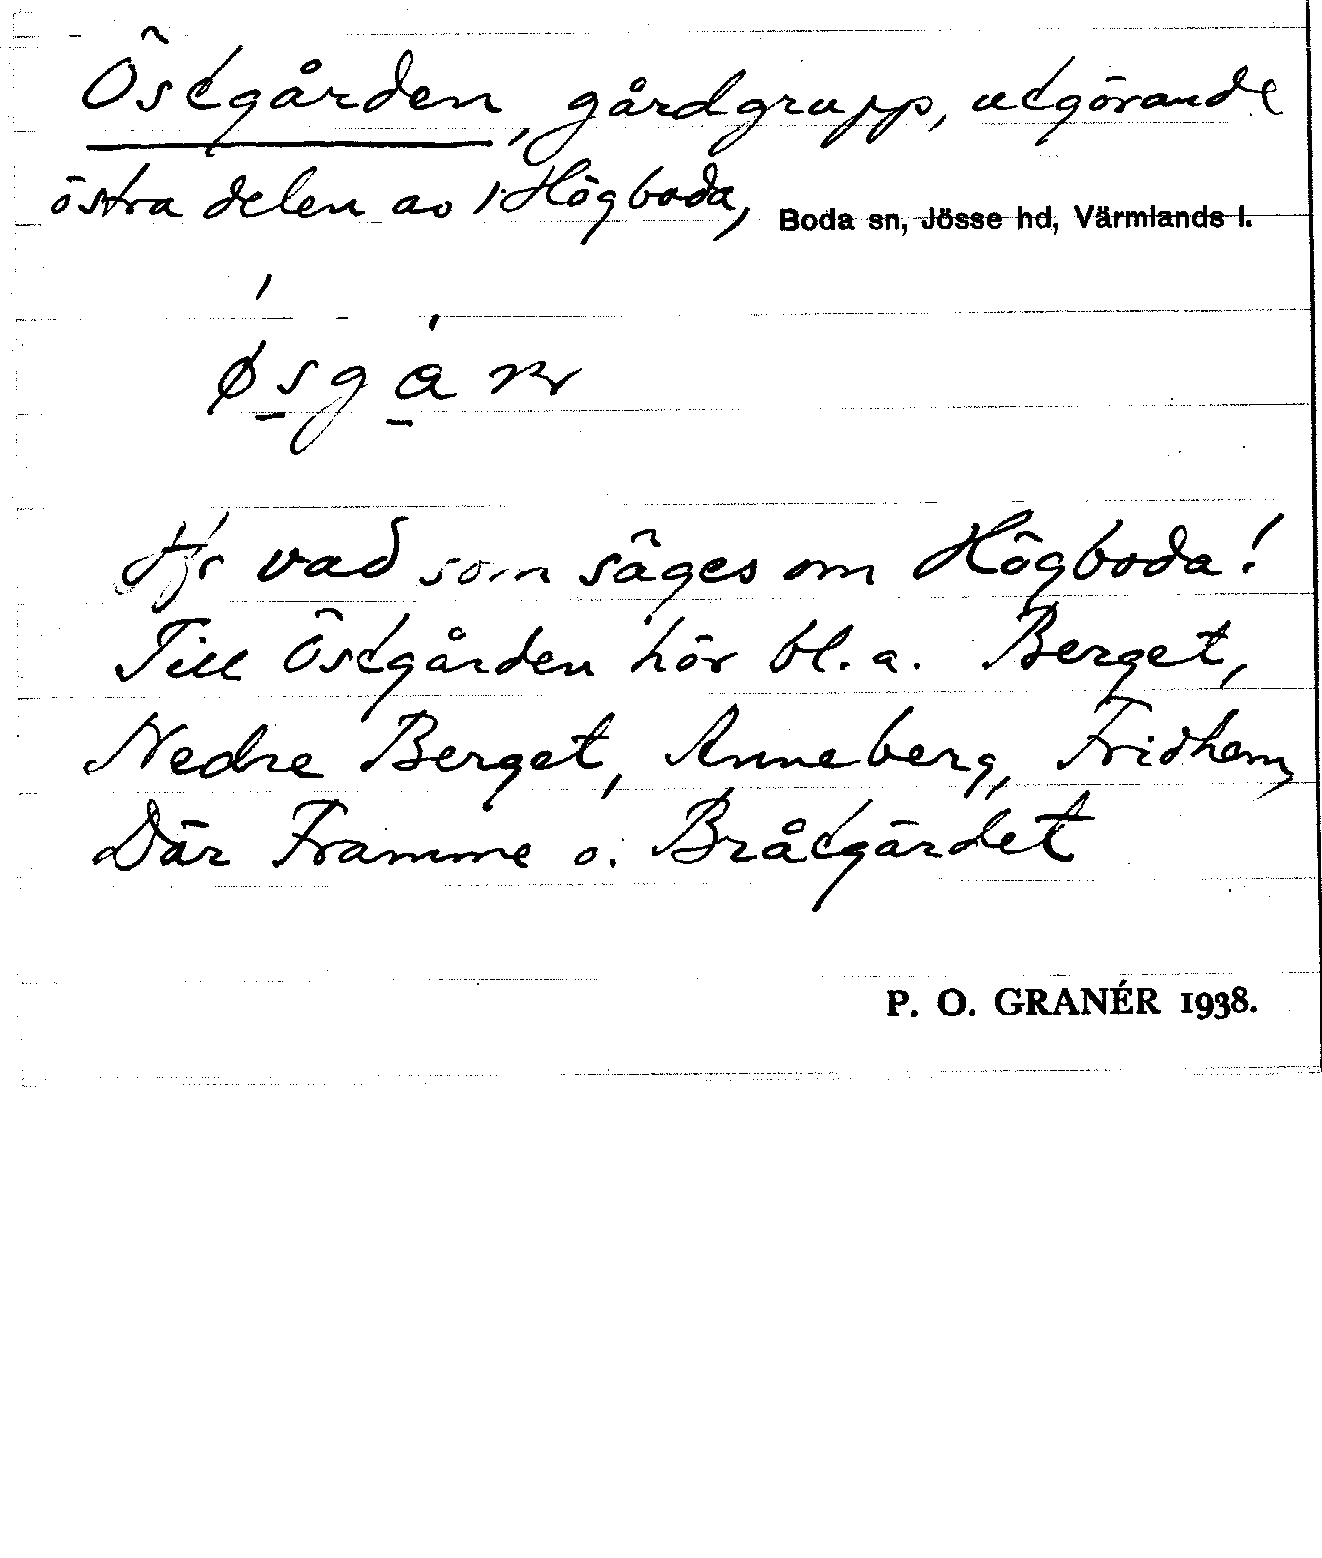 Östgården, gårdgrupp, utgörande
östra delen av Högboda, Boda sn, Jösse hd, Värmlands l.
Jfr vad som säges om Högboda!
Till Östgården hör bl. a. Berget,
Nedre Berget, Anneberg, Fridhem,
Där Framme o. Bråtgärdet
P. O. GRANÉR 1938.